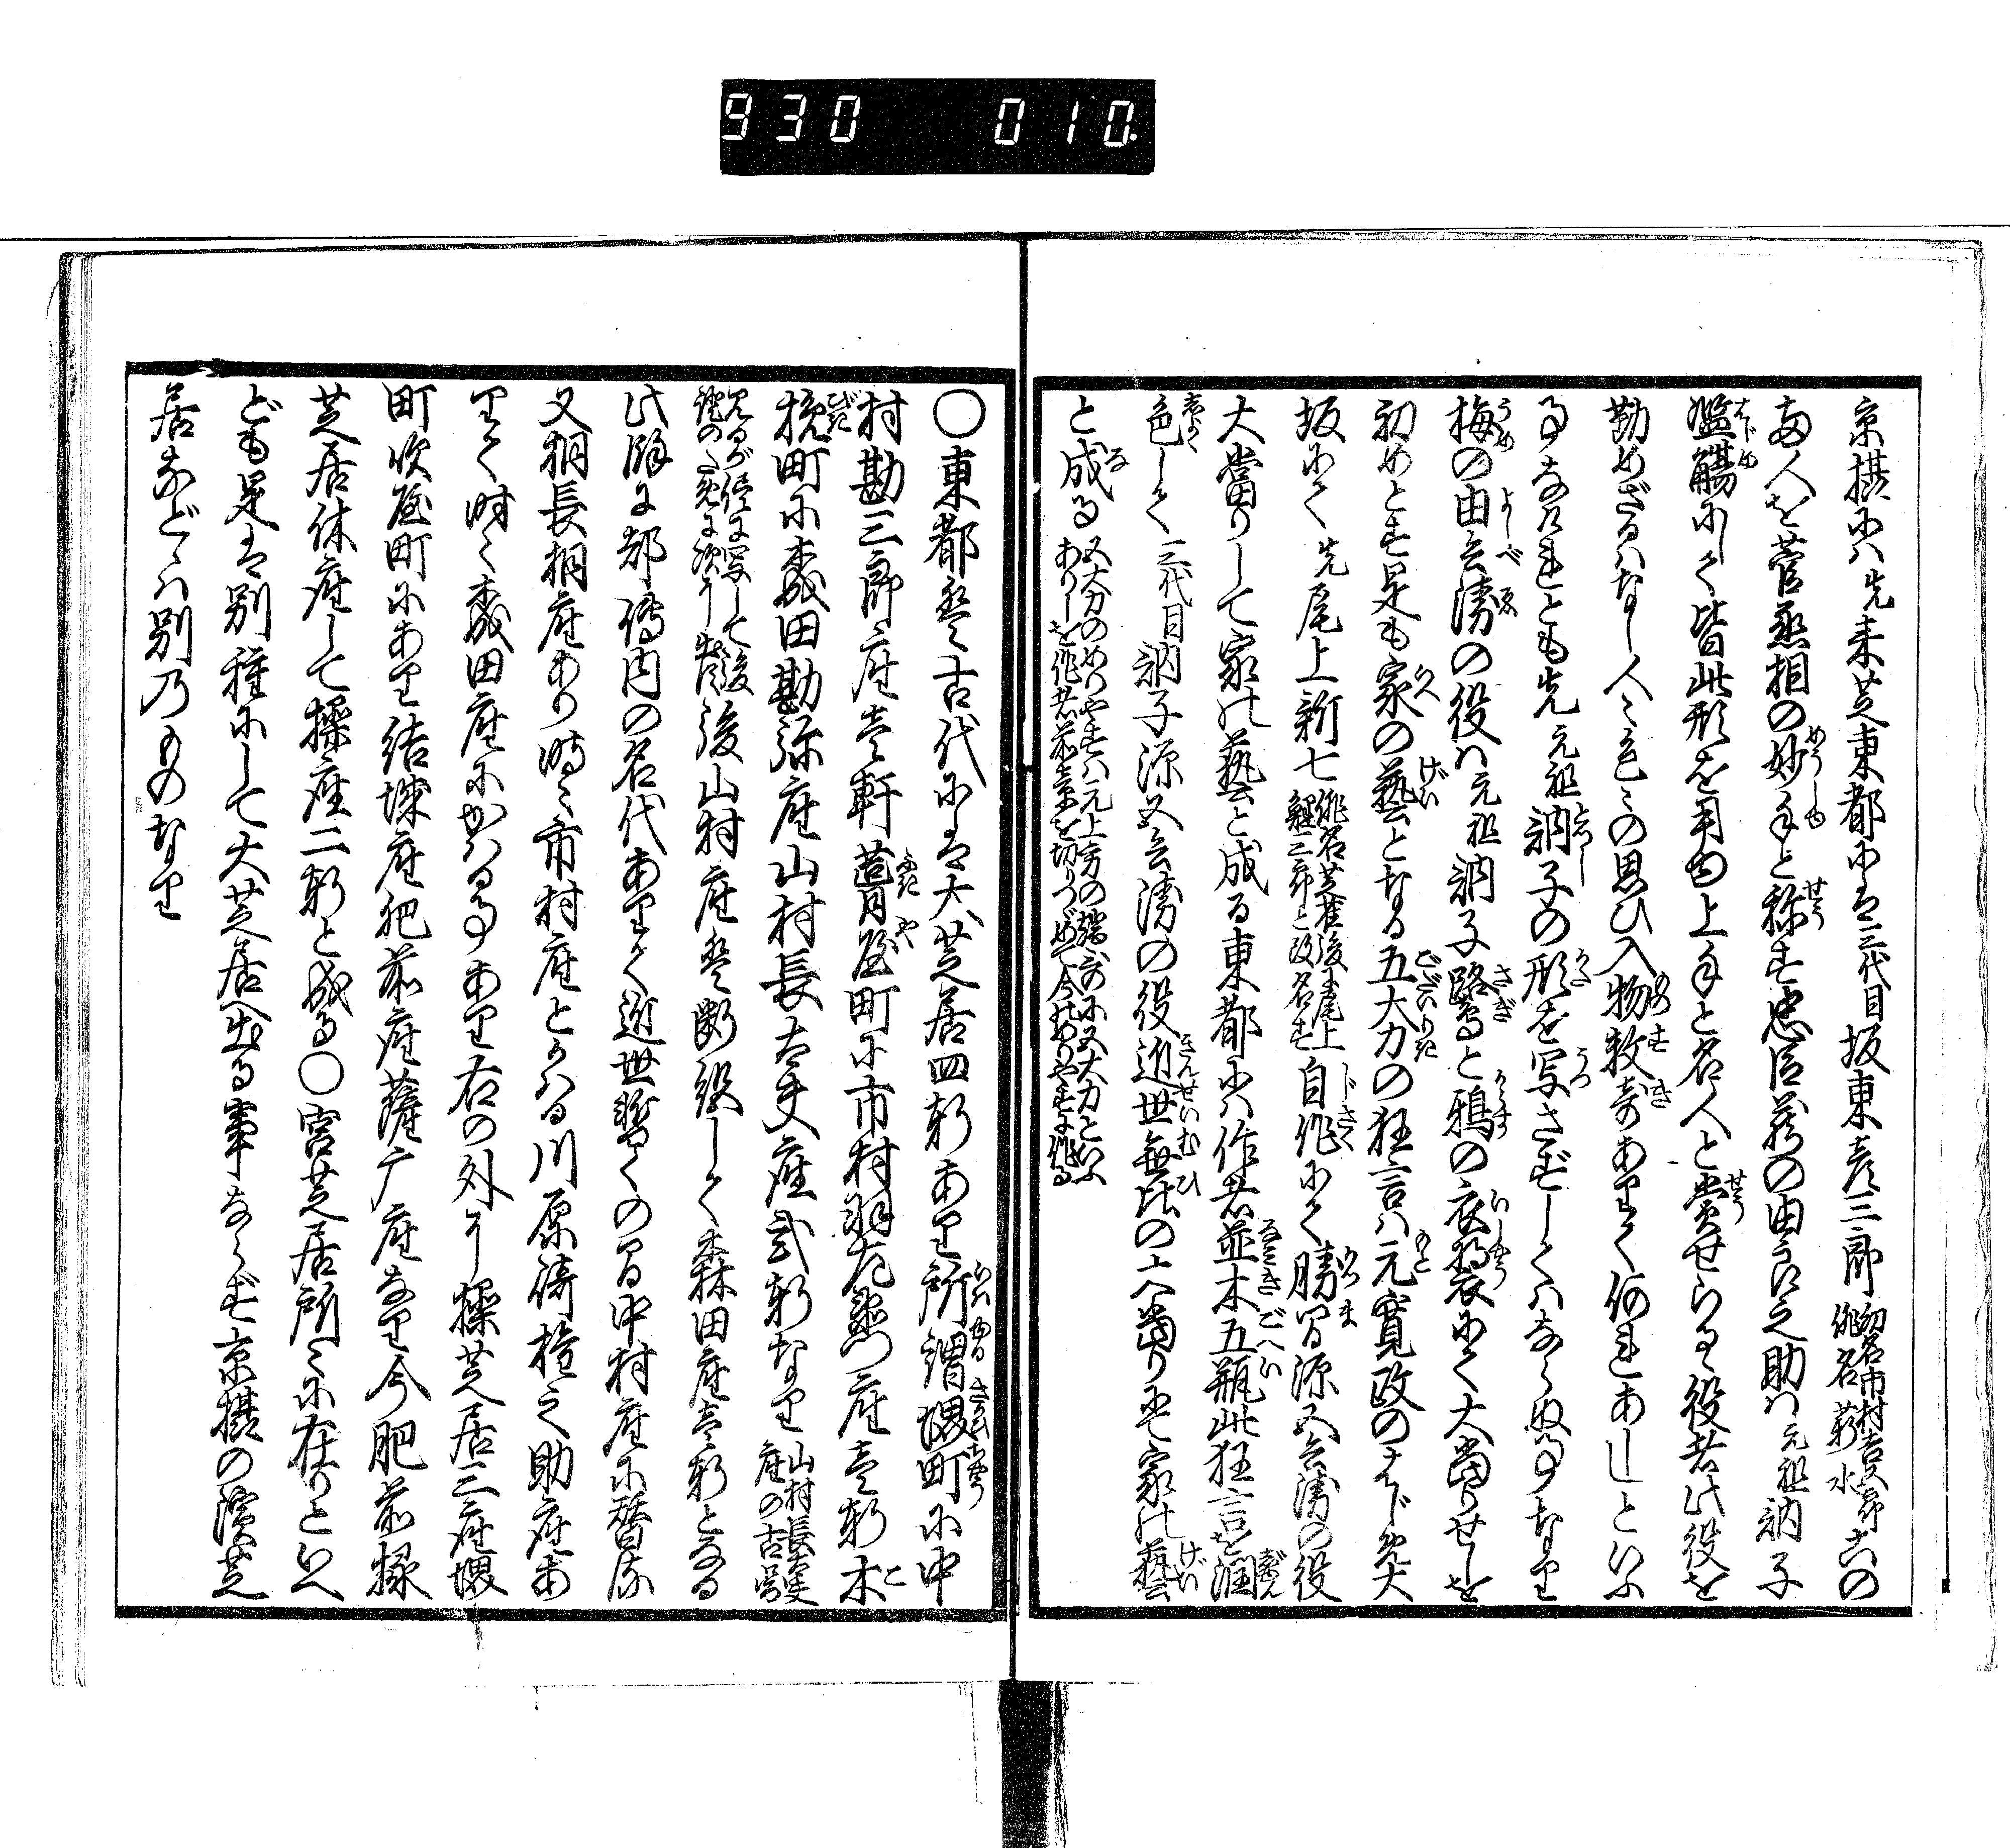 930 010
京摂にハ先来芝東都にハ三代目坂東彦三郎
初名市村吉五郎
俳名薪水
此の
両人を菅丞相の妙手と称す忠臣蔵の由良之助ハ元祖訥子
濫觴にして皆此形を用由上手と名人と賞せらるゝ役者此役を
勤めざるハなし人々色々の思ひ入物数寄ありて何れあしといふ
事なけれとも先元祖訥子の形を写さずしてハならぬ事なり
梅の由兵衛の役ハ元祖訥子鷺と鴉の衣裳にて大當りせしを
初めとす是も家の藝となる五大力の狂言ハ元寛政のはじめ大
坂にて先尾上新七
俳名芝雀後に尾上
鯉三郎と改名す
自作にて勝間源五兵衛の役
大當りして家の藝と成る東都にハ作者並木五瓶此狂言を潤
色して三代目訥子源五兵衛の役近世無比の大當り是家の藝
と成る
五大力のめりやすハ元上方の端哥に五大力といふ
ありしを作者並木を切りつゞめて今のめりやすに作る
〇東都に古代にハ大芝居四軒あり所謂堺町に中
村勘三郎座壱軒葺屋町に市村羽左衛門座壱軒木
挽町に森田勘弥座山村長太夫座弐軒なり
山村長太夫
座の古謡
後山村座ハ断絶して森田座壱軒となる
此節に都傳内の名代ありて近世暫くの間中村座に替る
又桐長桐座あり時々市村座とかハる川原崎権之助座あ
りて時々森田座にかハる事あり右の外に操芝居三座堺
町吹屋町にあり結城座肥前座薩广座なり今肥前掾
芝居休座して操座二軒と成る〇宮芝居所々に在りといへ
ども是ハ別種にして大芝居へ出る事ならず京摂の濱芝
居などゝハ別のものなり